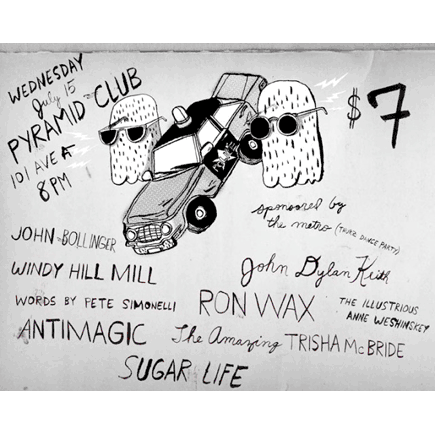 WEDNESDAY
July 15
PYRAMID CLUB
101 AVE A
8 PM
$7
sponsored by
the metro (TRUPZ DANCE PARTY)
JOHN BOLLINGER
WINDY HILL MILL
John Dylan Keith
WORDS BY PETE SIMONELLI
RON WAX
THE ILLUSTRIOUS
ANNE WESHINSKEY
ANTIMAGIC
The Amazing TRISHA McBRIDE
SUGAR LIFE